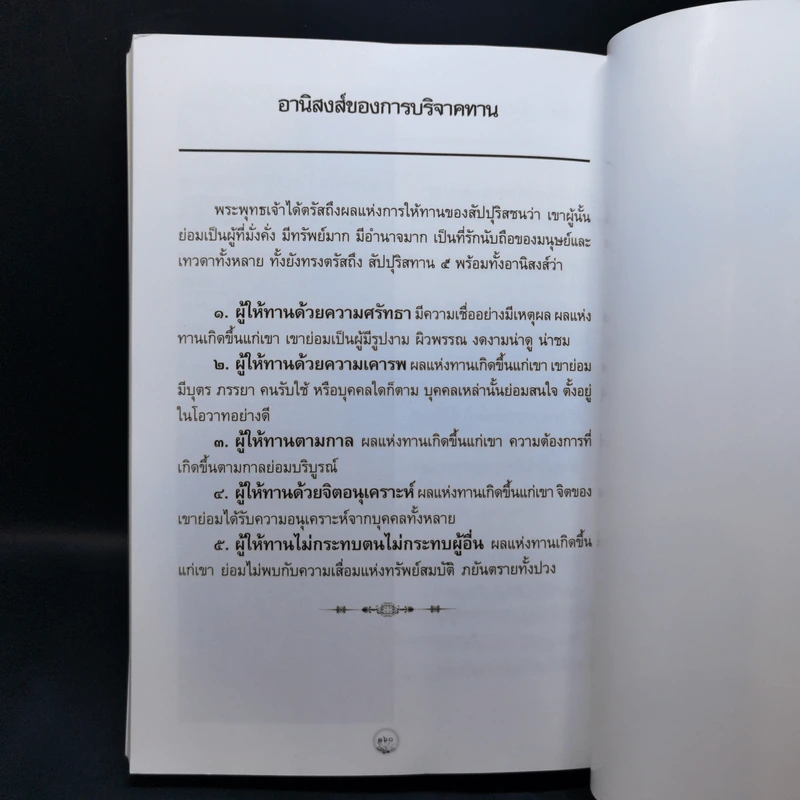 อานิสงส์ของการบริจาคทาน
พระพุทธเจ้าได้ตรัสถึงผลแห่งการให้ทานของสัปปุริสชนว่า เขาผู้นั้น
ย่อมเป็นผู้ที่มั่งคั่ง มีทรัพย์มาก มีอำนาจมาก เป็นที่รักนับถือของมนุษย์และ
เทวดาทั้งหลาย ทั้งยังทรงตรัสถึง สัปปุริสทาน ๕ พร้อมทั้งอานิสงส์ว่า
๑. ผู้ให้ทานด้วยความศรัทธา มีความเชื่ออย่างมีเหตุผล ผลแห่ง
ทานเกิดขึ้นแก่เขา เขาย่อมเป็นผู้มีรูปงาม ผิวพรรณ งดงามน่าดู น่าชม
๒. ผู้ให้ทานด้วยความเคารพ ผลแห่งทานเกิดขึ้นแก่เขา เขาย่อม
มีบุตร ภรรยา คนรับใช้ หรือบุคคลใดก็ตาม บุคคลเหล่านั้นย่อมสนใจ ตั้งอยู่
ในโอวาทอย่างดี
๓. ผู้ให้ทานตามกาล ผลแห่งทานเกิดขึ้นแก่เขา ความต้องการที่
เกิดขึ้นตามกาลย่อมบริบูรณ์
๔. ผู้ให้ทานด้วยจิตอนุเคราะห์ ผลแห่งทานเกิดขึ้นแก่เขา จิตของ
เขาย่อมได้รับความอนุเคราะห์จากบุคคลทั้งหลาย
๕. ผู้ให้ทานไม่กระทบตนไม่กระทบผู้อื่น ผลแห่งทานเกิดขึ้น
แก่เขา ย่อมไม่พบกับความเสื่อมแห่งทรัพย์สมบัติ ภยันตรายทั้งปวง